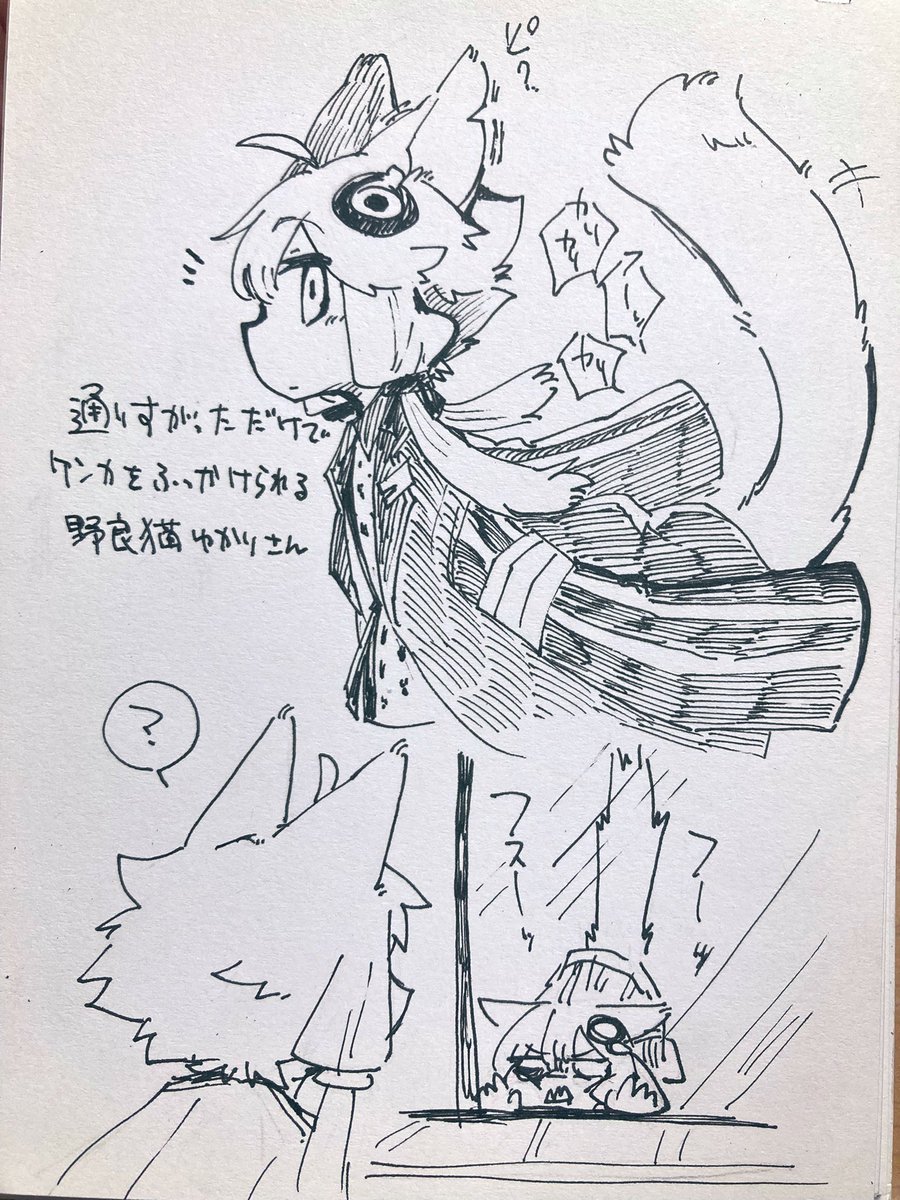 ピ?
カリ
カリ
カリ
通りすがっただけで
ケンカをふっかけられる
野良猫ゆかりさん
?
フスーッ
フーッ